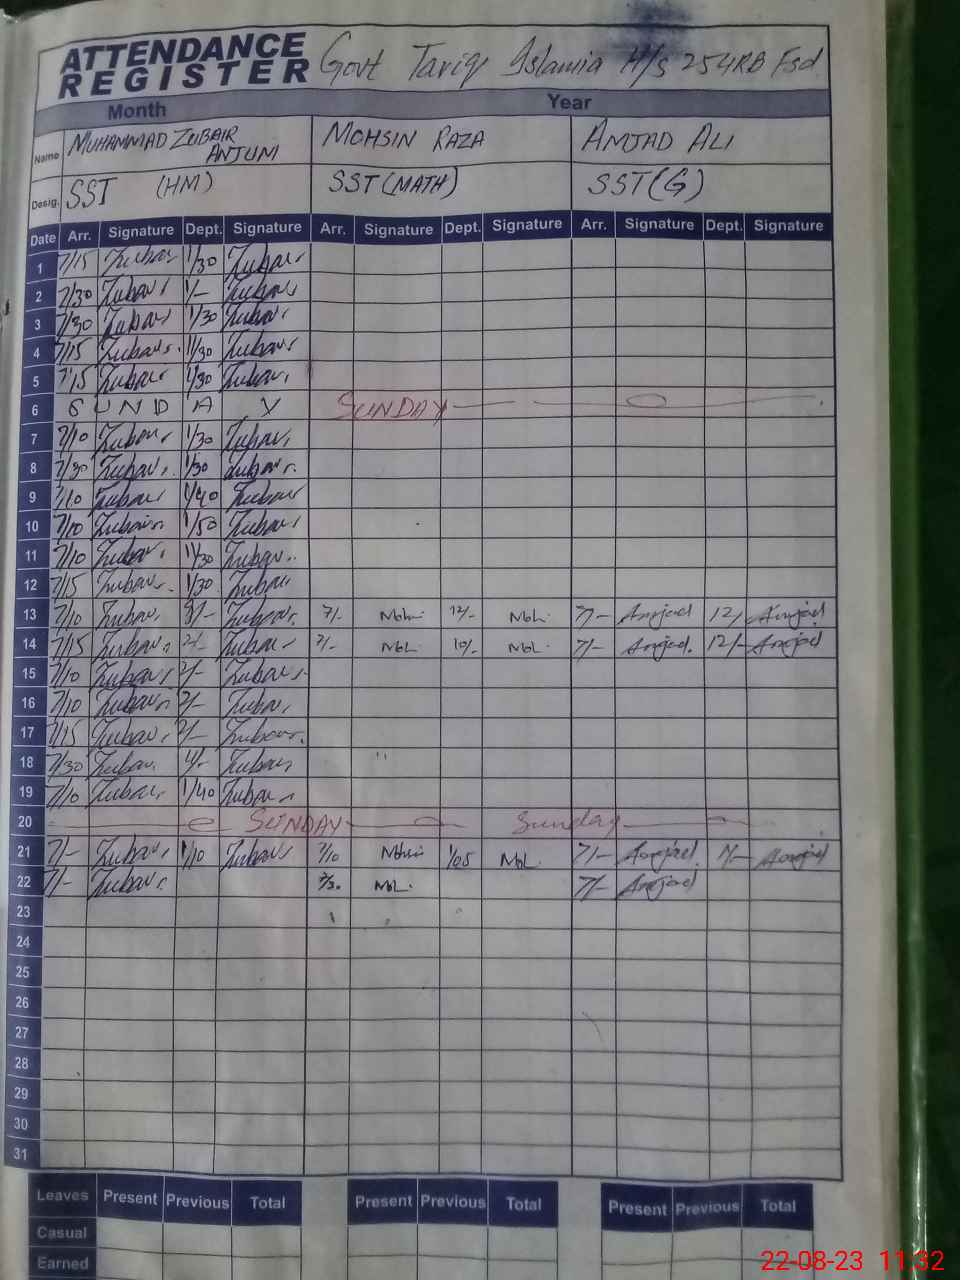 ATTENDANCE REGISTER Govt Tariq Islamia H/s 254RB Fsd
Month Year
Name MUHAMMAD ZUBAIR ANJUM MOHSIN RAZA AMJAD ALI
Desig. SST (HM) SST (MATH) SST (G)
Date Arr. Signature Dept. Signature Arr. Signature Dept. Signature Arr. Signature Dept. Signature
1 7/15 Zubair 1/30 Zubair
2 7/30 Zubair 1/- Zubair
3 7/30 Zubair 1/30 Zubair
4 7/15 Zubair 1/30 Zubair
5 7/15 Zubair 1/30 Zubair
6 SUNDAY SUNDAY
7 7/10 Zubair 1/30 Zubair
8 7/30 Zubair 1/30 Zubair
9 7/10 Zubair 1/40 Zubair
10 7/10 Zubair 1/50 Zubair
11 7/10 Zubair 1/30 Zubair
12 7/15 Zubair 1/30 Zubair
13 7/10 Zubair Zubair 7/- 12/- 7/- Amjad 12/ Amjad
14 7/15 Zubair 2/- Zubair 7/- 10/- 7/- Amjad 12/- Amjad
15 7/10 Zubair 2/- Zubair
16 7/10 Zubair 2/- Zubair
17 7/15 Zubair 2/- Zubair
18 7/30 Zubair Zubair
19 7/10 Zubair 1/40 Zubair
20 SUNDAY Sunday
21 7/- Zubair 1/10 Zubair 7/10 Mohsin 1/05 7/- Amjad 1/- Amjad
22 7/- Zubair 7/30 7/- Amjad
23
24
25
26
27
28
29
30
31
Leaves Present Previous Total Present Previous Total Present Previous Total
Casual
Earned
22-08-23 11:32